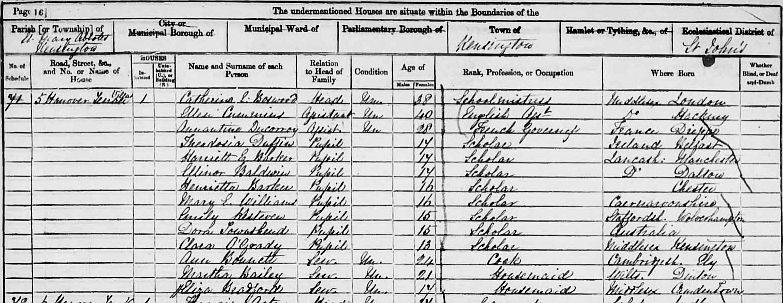 Page 16] The undermentioned Houses are situate within the Boundaries of the
Parish [or Township] of City or Municipal Borough of Municipal Ward of Parliamentary Borough of Town of Hamlet or Tything, &c., of Ecclesiastical District of
St Mary Abbots Kensington Kensington St John's
No. of Schedule Road, Street, &c., and No. or Name of House HOUSES Inhabited Uninhabited (U.), or Building (B.) Name and Surname of each Person Relation to Head of Family Condition Age of Males Females Rank, Profession, or Occupation Where Born Whether Blind, or Deaf-and-Dumb
5 Hanover Villas 1 Catherine Boswood Head Un. 38 Schoolmistress Middlesex London
Ellen Cummins Assistant Un 40 English Asst Do Hackney
Ducorroy Assist Un 28 French Governess France Dieppe
Theodosia Duffin Pupil 17 Scholar Ireland Belfast
Harriett G Barker Pupil 17 Scholar Lancash: Manchester
Ellinor Baldwin Pupil 17 Scholar Do Dalton
Henrietta Barker Pupil 16 Scholar Chester
Mary L Williams Pupil 16 Scholar Caernarvonshire
Emily Pupil 15 Scholar Staffords. Wolverhampton
Dora Townshend Pupil 15 Scholar Australia
Clara O'Grady Pupil 13 Scholar Middlesex Kensington
Ann Bonnett Serv. Un. 24 Cook Cambridgesh. Ely
Martha Bailey Serv Un. 21 Housemaid Wilts. Dinton
Eliza Bradford Serv Un 17 Housemaid Middlesex Camden Town